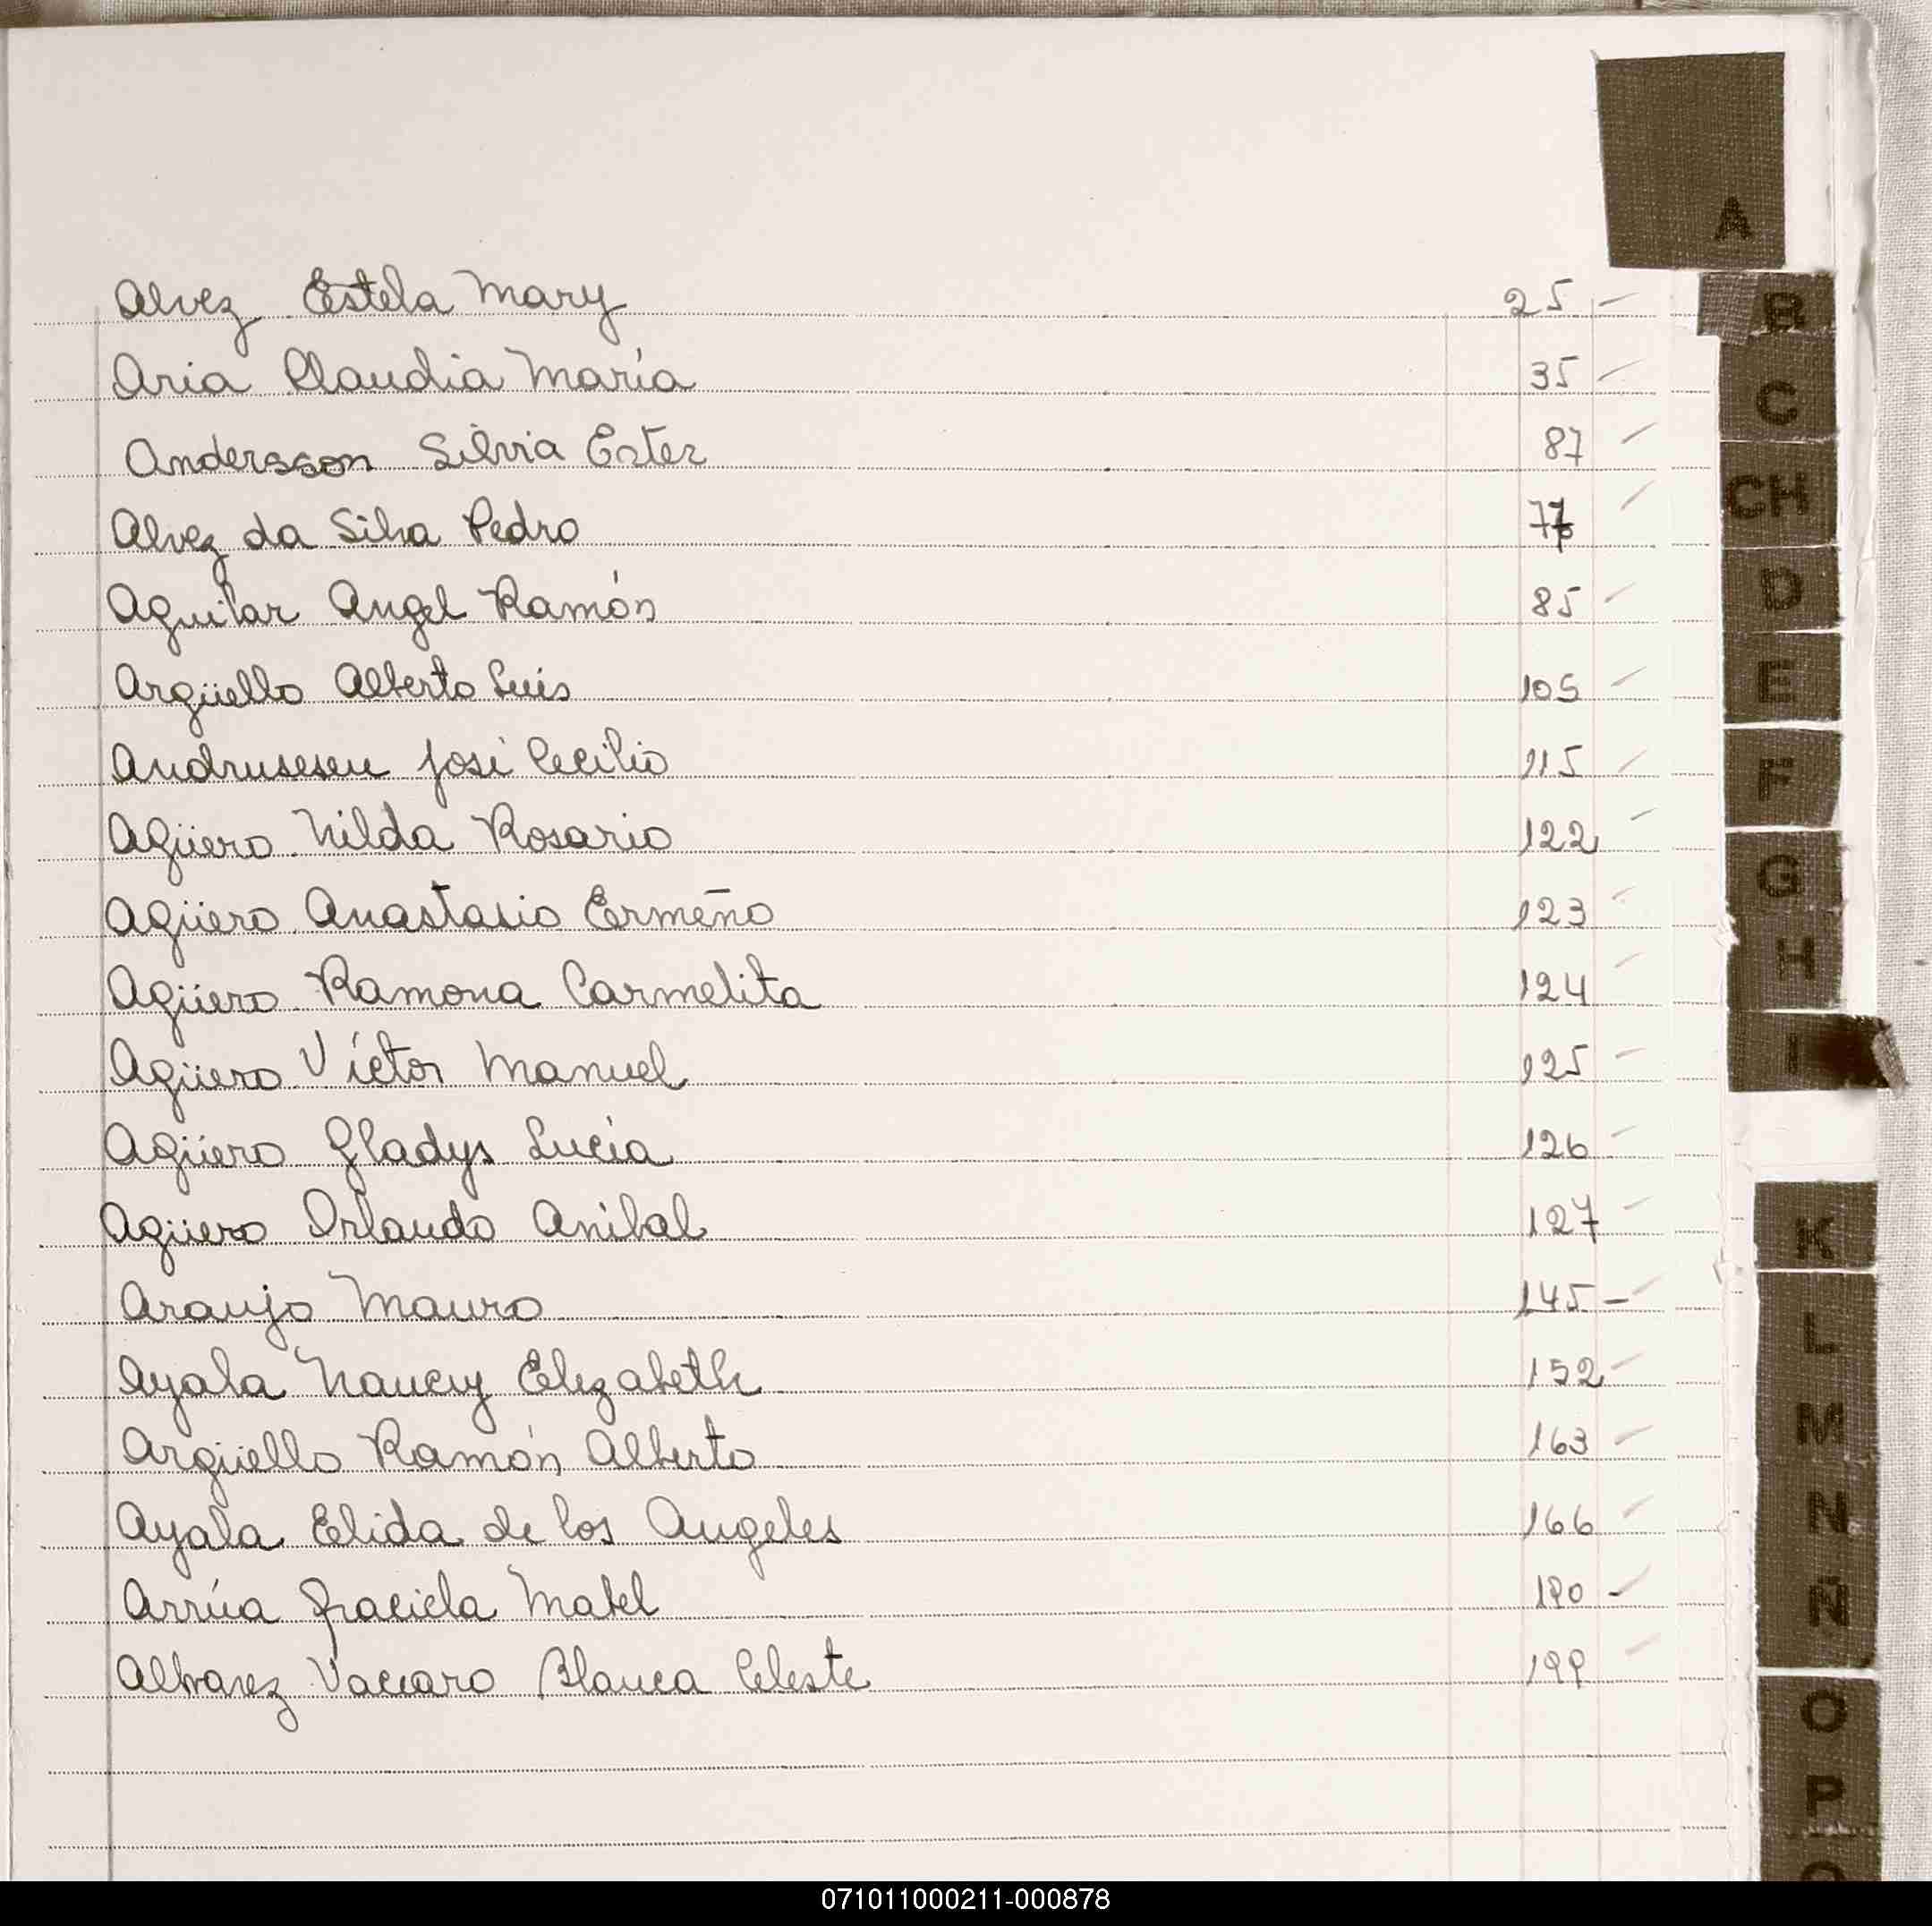 A
Alvez Estela Mary 25 -
Aria Claudia María 35
Andersson Silvia Ester 87
Alvez da Silva Pedro 77
Aguilar Angel Ramón 85
Argüello Alberto Luis 105
José Cecilio 115
Agüero Nilda Rosario 122
Agüero Anastasio Ermeño 123
Agüero Ramona Carmelita 124
Agüero Víctor Manuel 125
Agüero Gladys Lucía 126
Agüero Orlando Anibal 127
Araujo Mauro 145 -
Ayala Nancy Elizabeth 152
Argüello Ramón Alberto 163
Ayala Elida de los Angeles 166
Arrúa Graciela Mabel 190 -
Alvarez Vaccaro Blanca Celeste 199
B
C
CH
D
E
F
G
H
I
K
L
M
N
Ñ
O
P
071011000211-000878